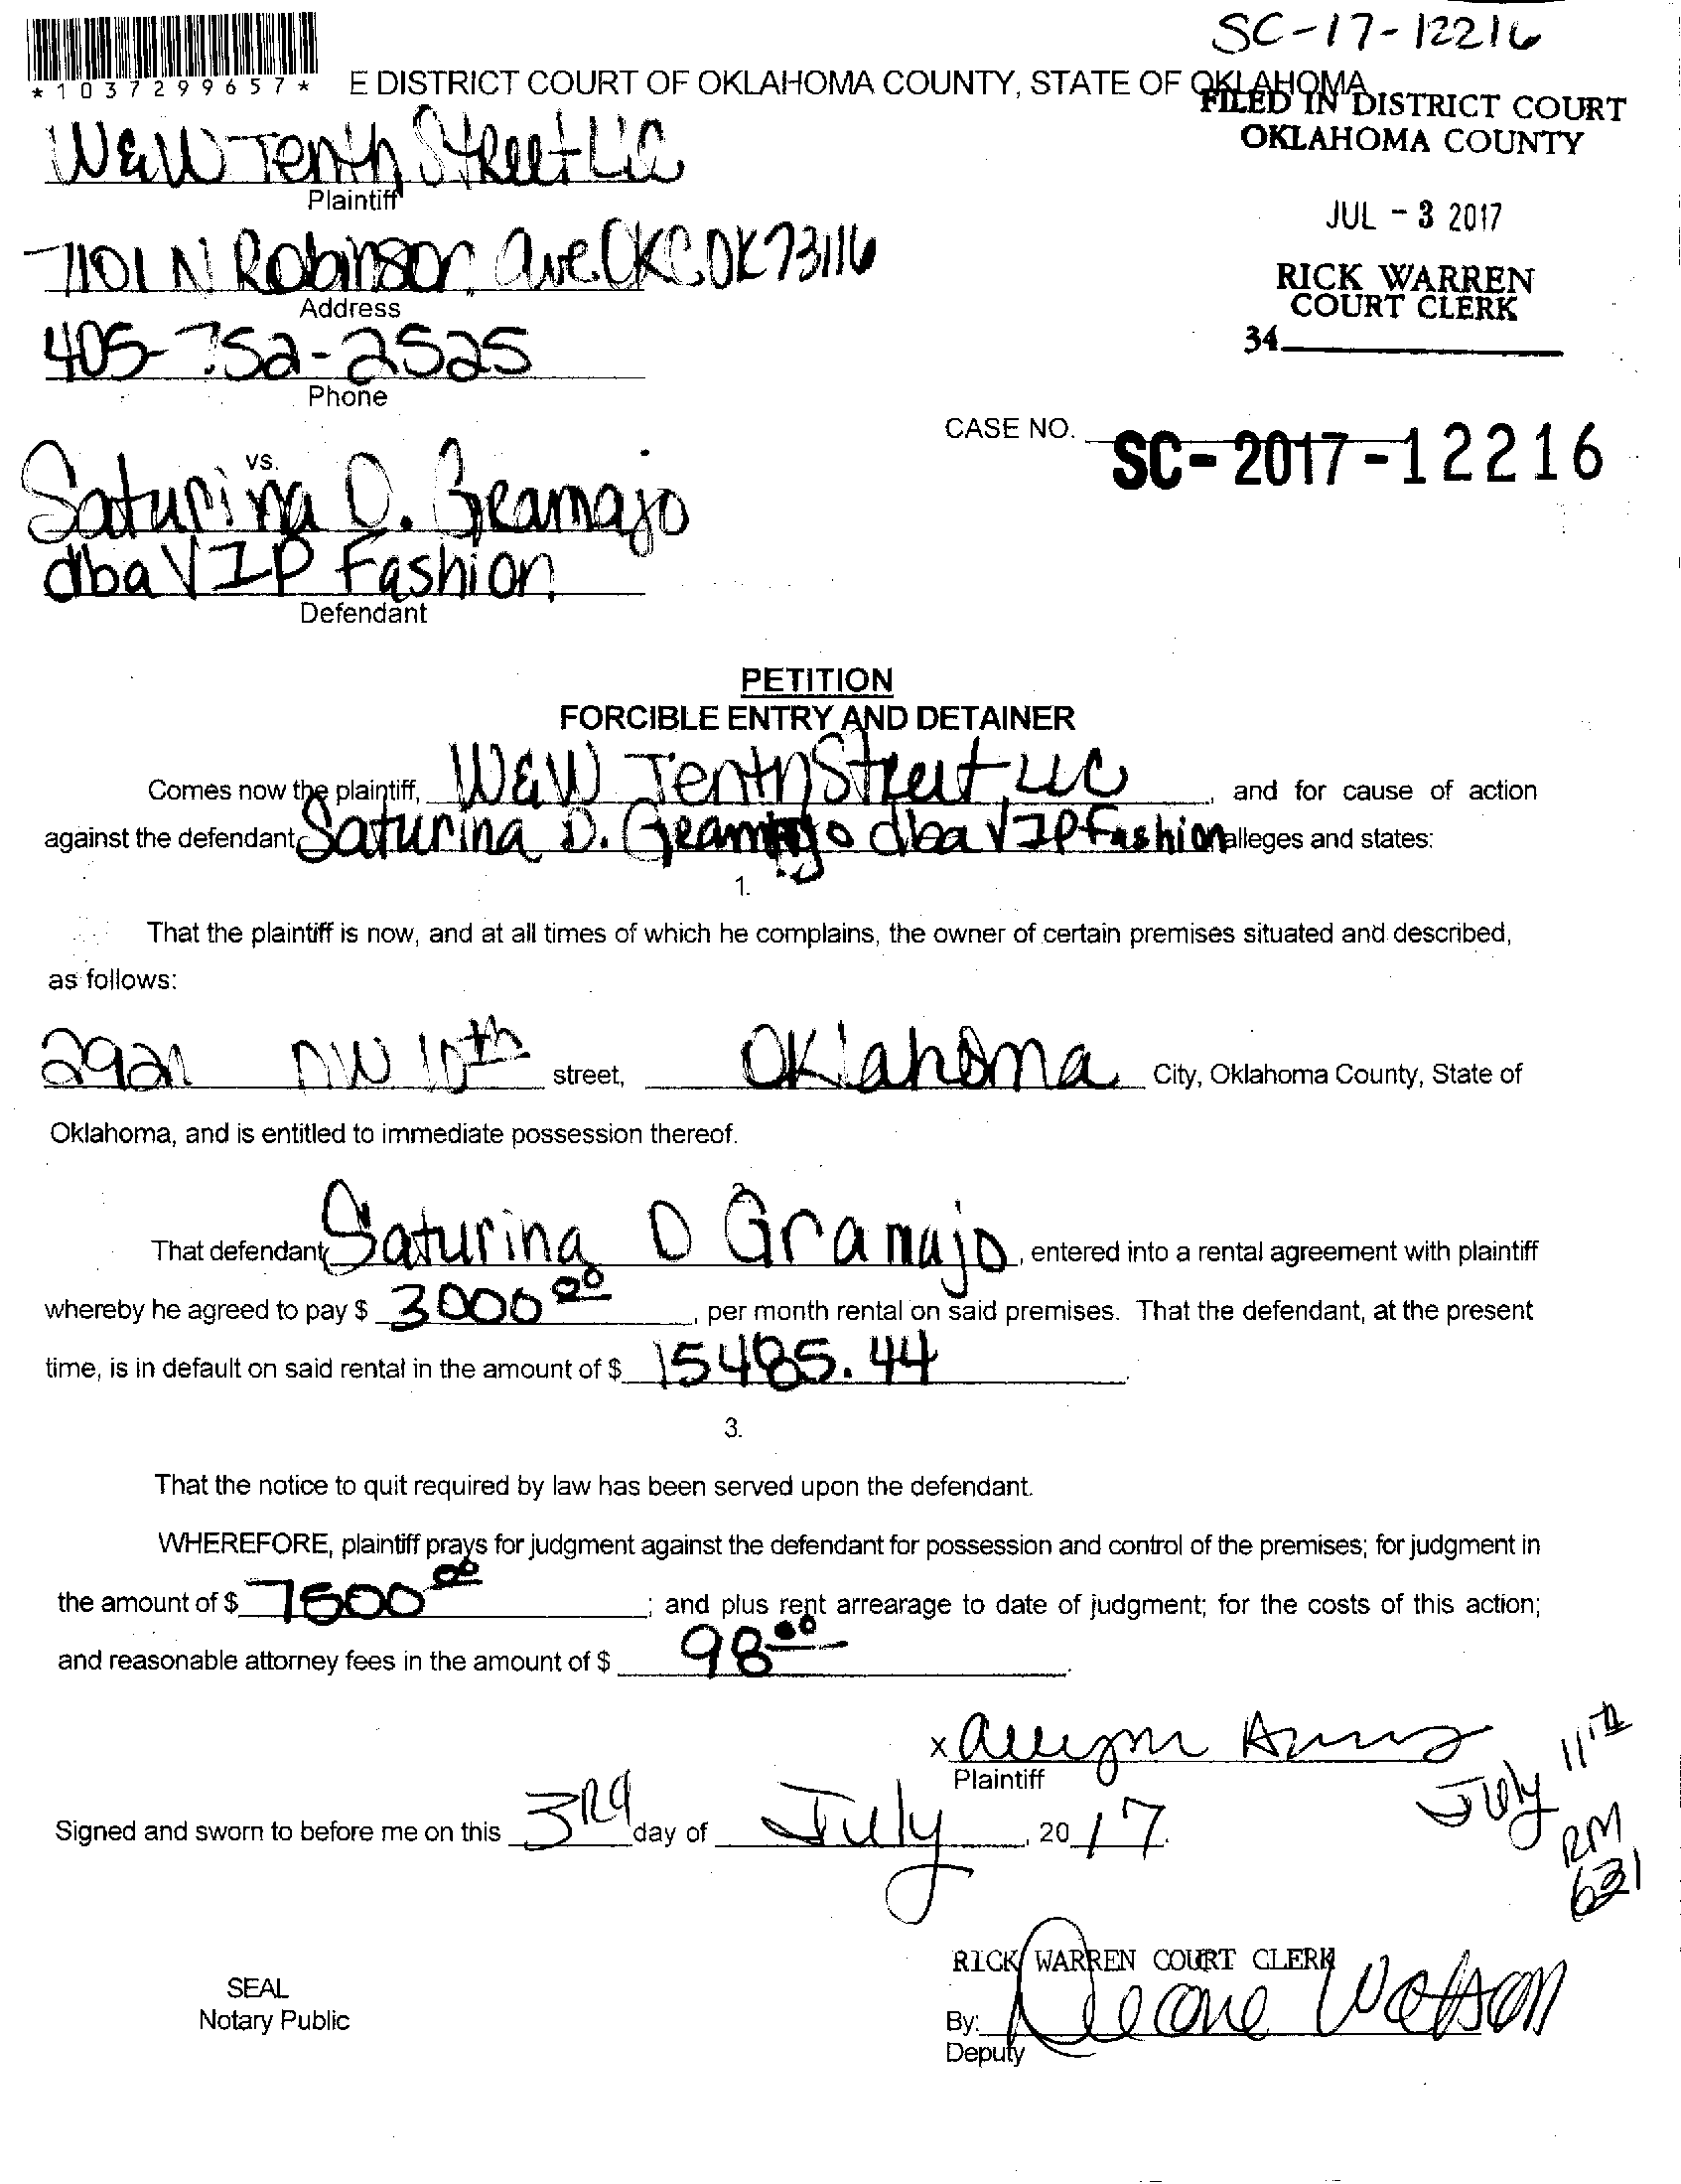 SC-17-12216
*1037299657*
E DISTRICT COURT OF OKLAHOMA COUNTY, STATE OF OKLAHOMA
FILED IN DISTRICT COURT
OKLAHOMA COUNTY
W&W Tenth Street LLC
Plaintiff
JUL - 3 2017
7101 N Robinson Ave. OKC OK 73116
Address
RICK WARREN
COURT CLERK
34
405-752-2525
Phone
CASE NO. SC-2017-12216
vs.
Saturina D. Geamajo
dba VIP Fashion
Defendant
PETITION
FORCIBLE ENTRY AND DETAINER
Comes now the plaintiff, W&W Tenth Street, LLC, and for cause of action
against the defendant, Saturina D. Geamajo dba VIP Fashion alleges and states:
1.
That the plaintiff is now, and at all times of which he complains, the owner of certain premises situated and described,
as follows:
NW 10th street, Oklahoma City, Oklahoma County, State of
Oklahoma, and is entitled to immediate possession thereof.
2.
That defendant, Saturina D Gramajo, entered into a rental agreement with plaintiff
whereby he agreed to pay $ 3000 00, per month rental on said premises. That the defendant, at the present
time, is in default on said rental in the amount of $ 15485.44.
3.
That the notice to quit required by law has been served upon the defendant.
WHEREFORE, plaintiff prays for judgment against the defendant for possession and control of the premises; for judgment in
the amount of $ 7500 00; and plus rent arrearage to date of judgment; for the costs of this action;
and reasonable attorney fees in the amount of $ 98 00.
x
Plaintiff
July 11th
RM
631
Signed and sworn to before me on this 3rd day of July, 2017.
RICK WARREN COURT CLERK
SEAL
Notary Public
By: Watson
Deputy